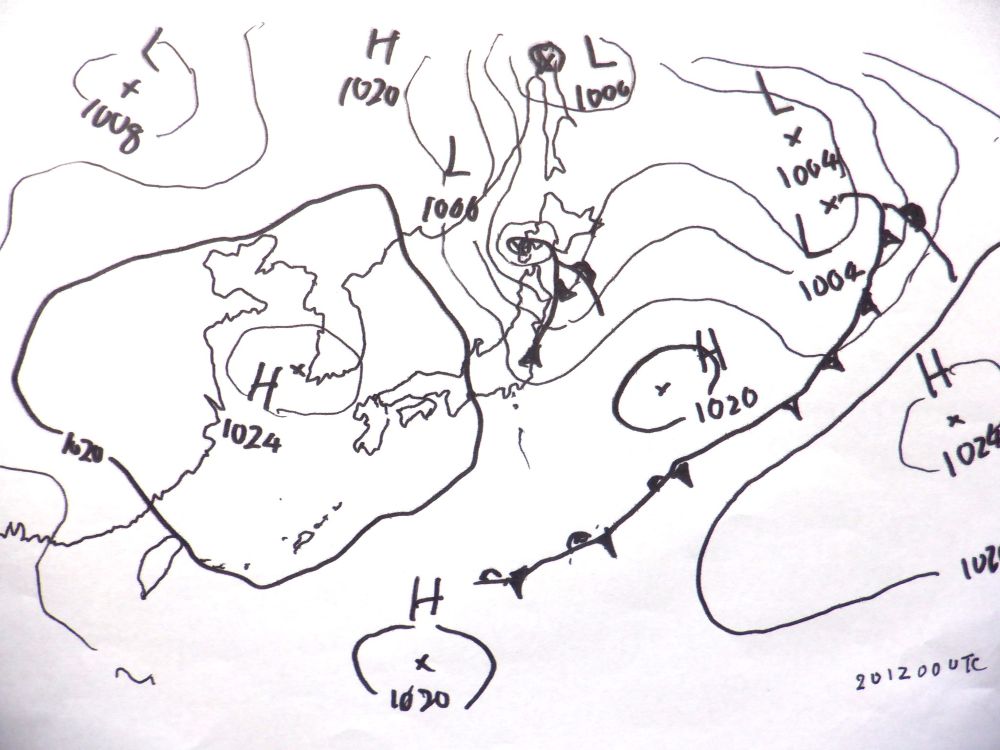 L
1008
H
1020
L
1006
L
1006
L
1004
L
1004
H
1024
H
1020
H
1024
1020
H
1020
201200UTC